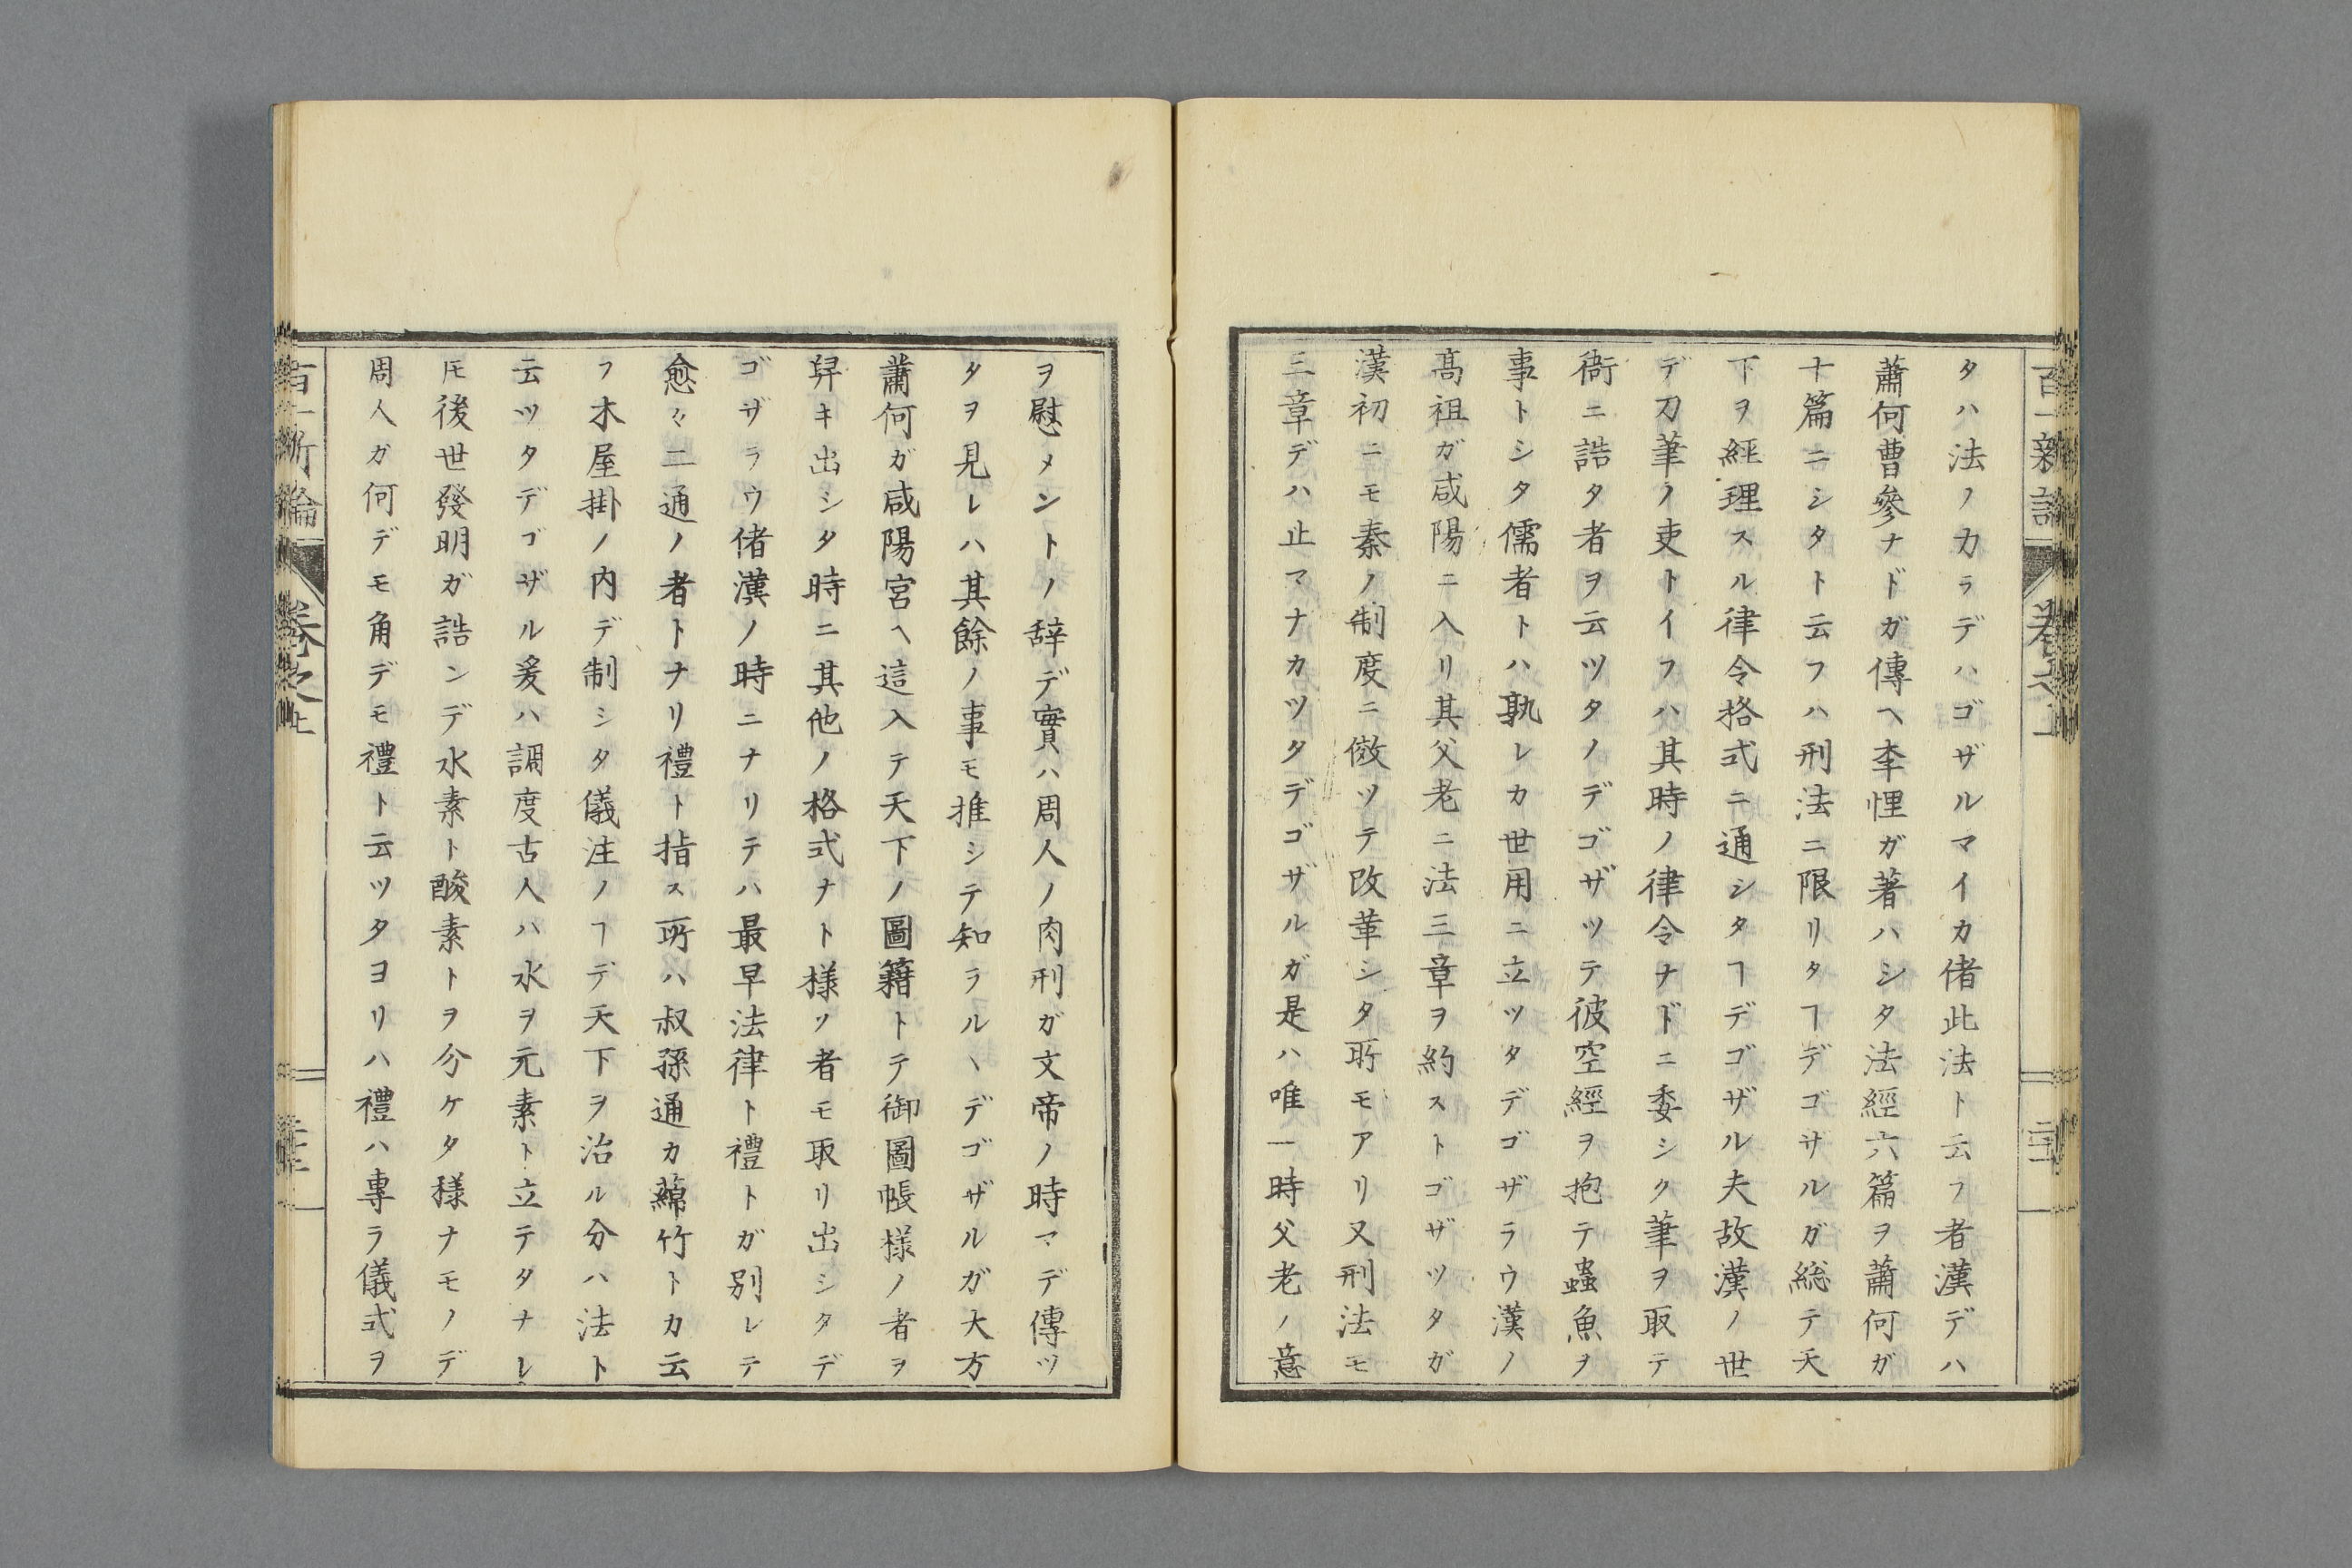 タハ法ノカラデハゴザルマイカ偖此法ト云フ者漢デハ
蕭何曹參ナドガ傳ヘ李悝ガ著ハシタ法經六篇ヲ蕭何ガ
十篇ニシタト云フハ刑法ニ限リタヿデゴザルガ総テ天
下ヲ經理スル律令格式ニ通シタヿデゴザル夫故漢ノ世
デ刀筆ノ吏トイフハ其時ノ律令ナドニ委シク筆ヲ取テ
衙ニ誥タ者ヲ云ツタノデゴザツテ彼空經ヲ抱テ蟲魚ヲ
事トシタ儒者トハ孰レカ世用ニ立ツタデゴザラウ漢ノ
髙祖ガ咸陽ニ入リ其父老ニ法三章ヲ約ストゴザツタガ
漢初ニモ秦ノ制度ニ傚ツテ改革シタ所モアリ又刑法モ
三章デハ止マナカツタデゴザルガ是ハ唯一時父老ノ意
ヲ慰メントノ辞デ實ハ周人ノ肉刑ガ文帝ノ時マデ傳ツ
タヲ見レハ其餘ノ事モ推シテ知ラルヽデゴザルガ大方
蕭何ガ咸陽宮ヘ這入テ天下ノ圖籍トテ御圖帳様ノ者ヲ
舁キ出シタ時ニ其他ノ格式ナト様ノ者モ取リ出シタデ
ゴザラウ偖漢ノ時ニナリテハ最早法律ト禮トガ別レテ
愈々二通ノ者トナリ禮ト指ス所ハ叔孫通カ蘂竹トカ云
フ木屋掛ノ内デ制シタ儀注ノヿデ天下ヲ治ル分ハ法ト
云ツタデゴザル爰ハ調度古人ハ水ヲ元素ト立テタナレ
𪜈後世發明ガ誥ンデ水素ト酸素トヲ分ケタ様ナモノデ
周人ガ何デモ角デモ禮ト云ツタヨリハ禮ハ專ラ儀式ヲ